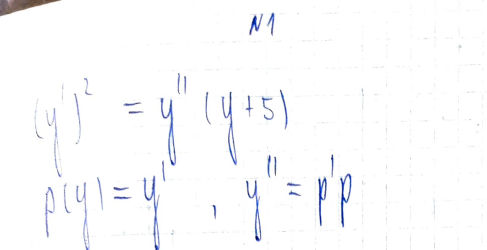 N1
(y')² = y'' (y+5)
p(y) = y' , y'' = p'p